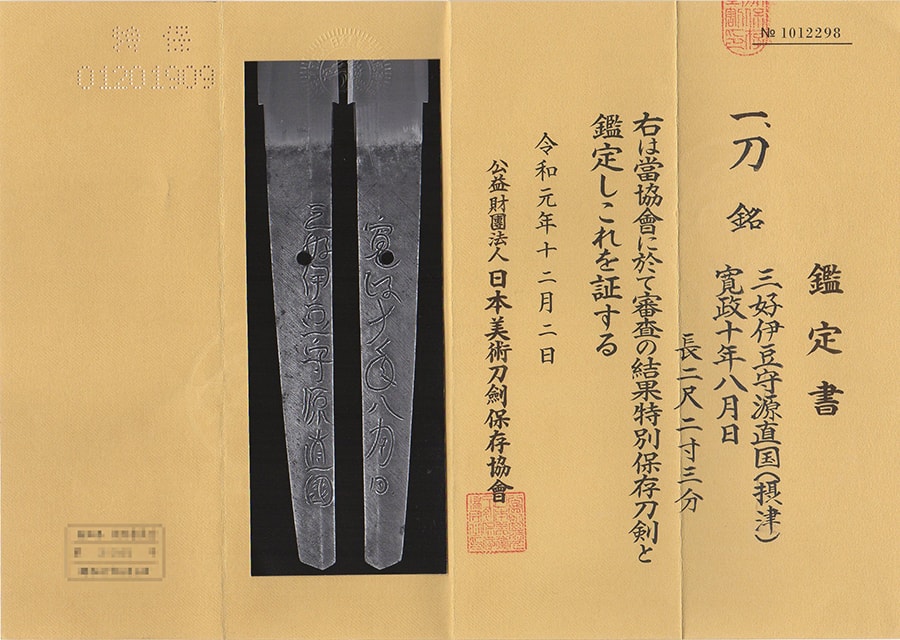 № 1012298
鑑定書
一、刀 銘 三好伊豆守源直国(摂津)
寛政十年八月日
長二尺二寸三分
右は當協會に於て審査の結果特別保存刀剣と
鑑定しこれを証する
令和元年十二月二日
公益財團法人 日本美術刀劍保存協會
寛政十年八月日
三好伊豆守源直國
特保
01201909